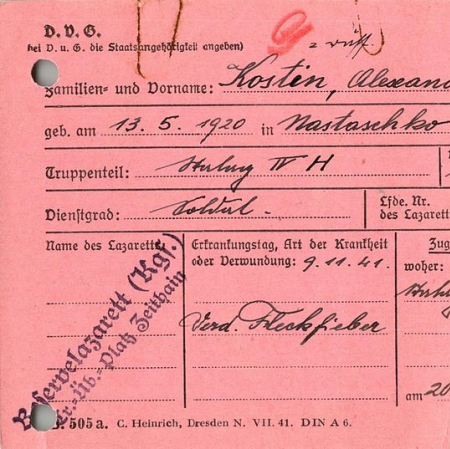 D. V. G.
bei D. u. G. die Staatsangehörigkeit angeben)
= russ.
Familien- und Vorname: Kostin, Alexand
geb. am 13. 5. 1920 in Nastaschko
Truppenteil: Stalag IV H
Dienstgrad: Soldat.
Lfde. Nr.
des Lazarett
Name des Lazaretts
Erkrankungstag, Art der Krankheit
oder Verwundung: 9.11.41.
Verd. Fleckfieber
Zug
woher:
Stalag
am 20
Reservelazarett (Kgf.)
Tr.-Üb.-Platz Zeithain
505a. C. Heinrich, Dresden N. VII. 41. DIN A 6.